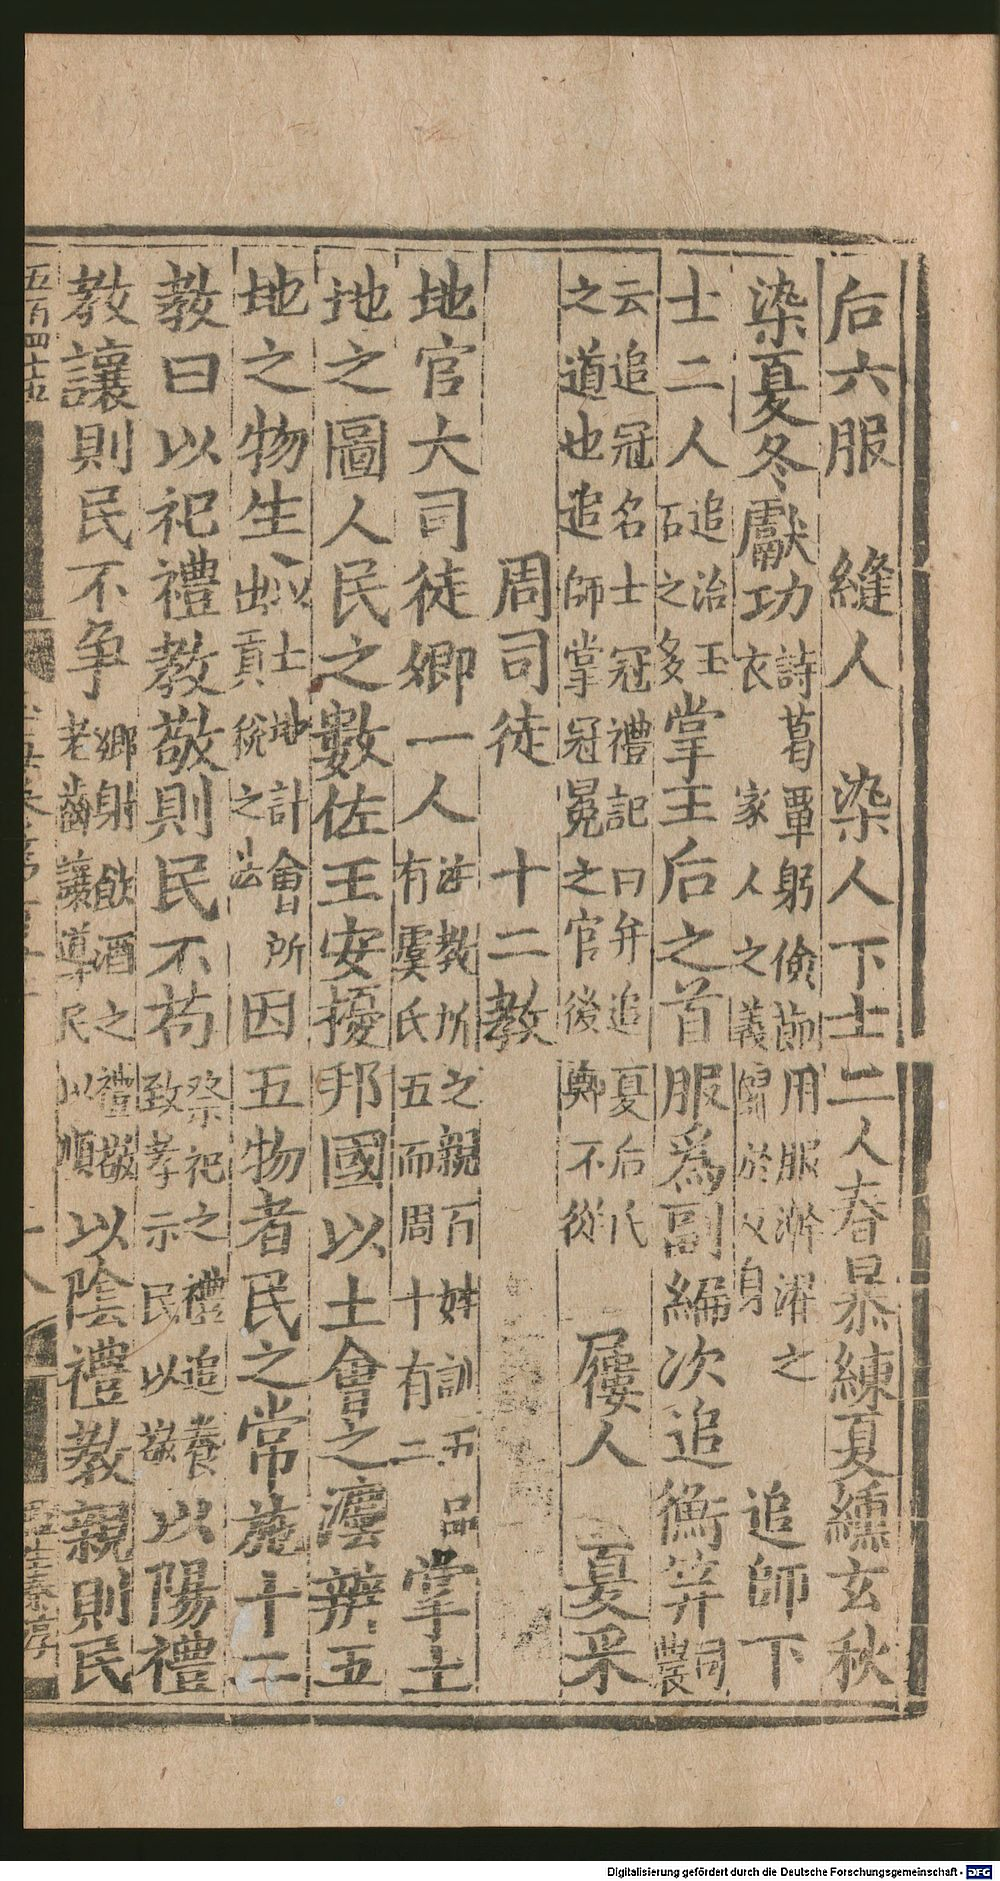 后六服 縫人 染人下士二人春暴練夏纁玄秋
染夏冬獻功詩葛覃躬儉節用服澣濯之衣家人之義歸於反身 追師下
士二人追治玉石之多掌王后之首服爲副編次追衡笄司農
云追冠名士冠禮記曰弁追夏后氏之道也追師掌冠冕之官後鄭不從 屨人 夏采
周司徒 十二教
地官大司徒卿一人敎所之親百姓訓五品有虞氏五而周十有二掌土
地之圖人民之數佐王安擾邦國以土會之灋辨五
地之物生以土地計會所出貢稅之法因五物者民之常施十二
教曰以祀禮教敬則民不苟祭祀之禮追養致孝示民以敬以陽禮
教讓則民不爭鄉射飲酒之禮敬老齒讓導民以順以陰禮教親則民
五百四十五
Digitalisierung gefördert durch die Deutsche Forschungsgemeinschaft - DFG